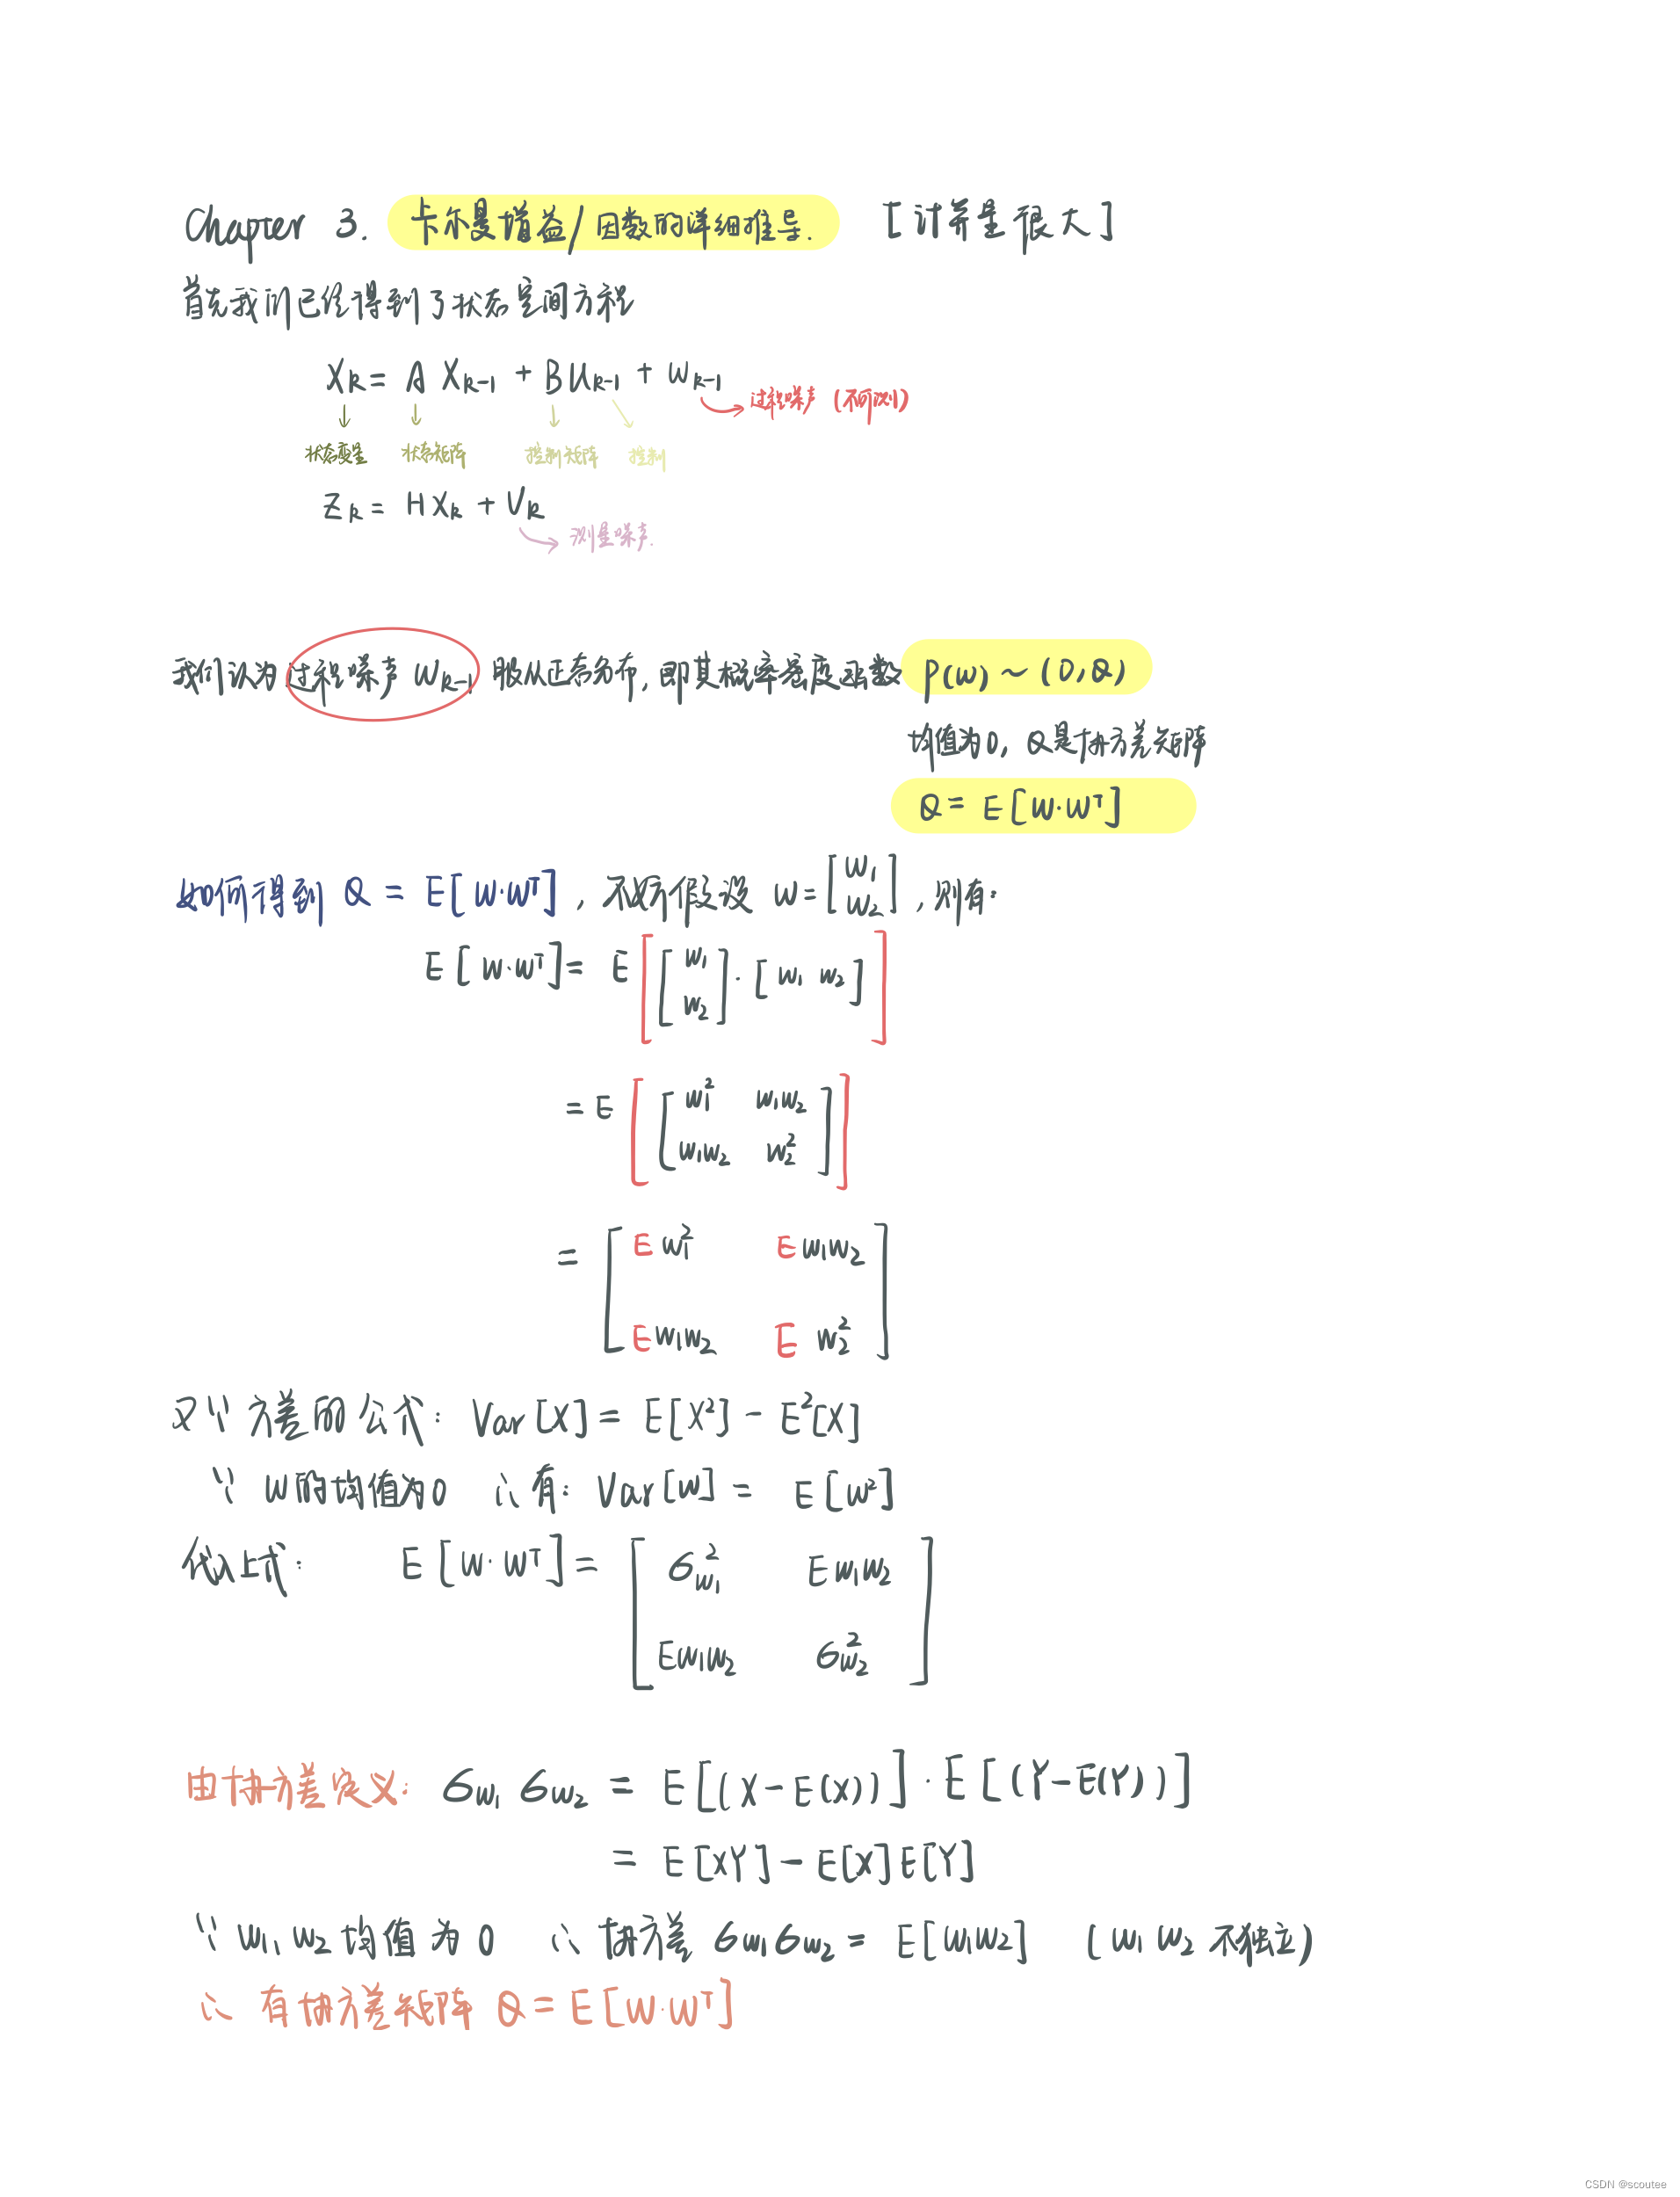 Chapter 3. 卡尔曼增益/因数的详细推导. [计算量很大]
首先我们已经得到了状态空间方程
X_k = A X_{k-1} + B U_{k-1} + W_{k-1}
过程噪声 (不可测)
状态变量 状态矩阵 控制矩阵 控制
Z_k = H X_k + V_k
测量噪声.
我们认为过程噪声 W_{k-1} 服从正态分布, 即其概率密度函数 P(w) ~ (0, Q)
均值为0, Q是协方差矩阵
Q = E[W·W^T]
如何得到 Q = E[W·W^T], 不妨假设 W = [W_1 W_2], 则有:
E[W·W^T] = E[[W_1 W_2]·[W_1 W_2]]
= E[[W_1^2 W_1W_2
W_1W_2 W_2^2]]
= [E W_1^2 E W_1W_2
E W_1W_2 E W_2^2]
又∵ 方差的公式: Var[X] = E[X^2] - E^2[X]
∵ W的均值为0 ∴有: Var[W] = E[W^2]
代入上式: E[W·W^T] = [σ_{W_1}^2 E W_1W_2
E W_1W_2 σ_{W_2}^2]
由协方差定义: σ_{W_1} σ_{W_2} = E[(X-E(X))]·E[(Y-E(Y))]
= E[XY] - E[X]E[Y]
∵ W_1, W_2 均值为0 ∴ 协方差 σ_{W_1} σ_{W_2} = E[W_1W_2] (W_1 W_2 不独立)
∴ 有协方差矩阵 Q = E[W·W^T]
CSDN @scoutee